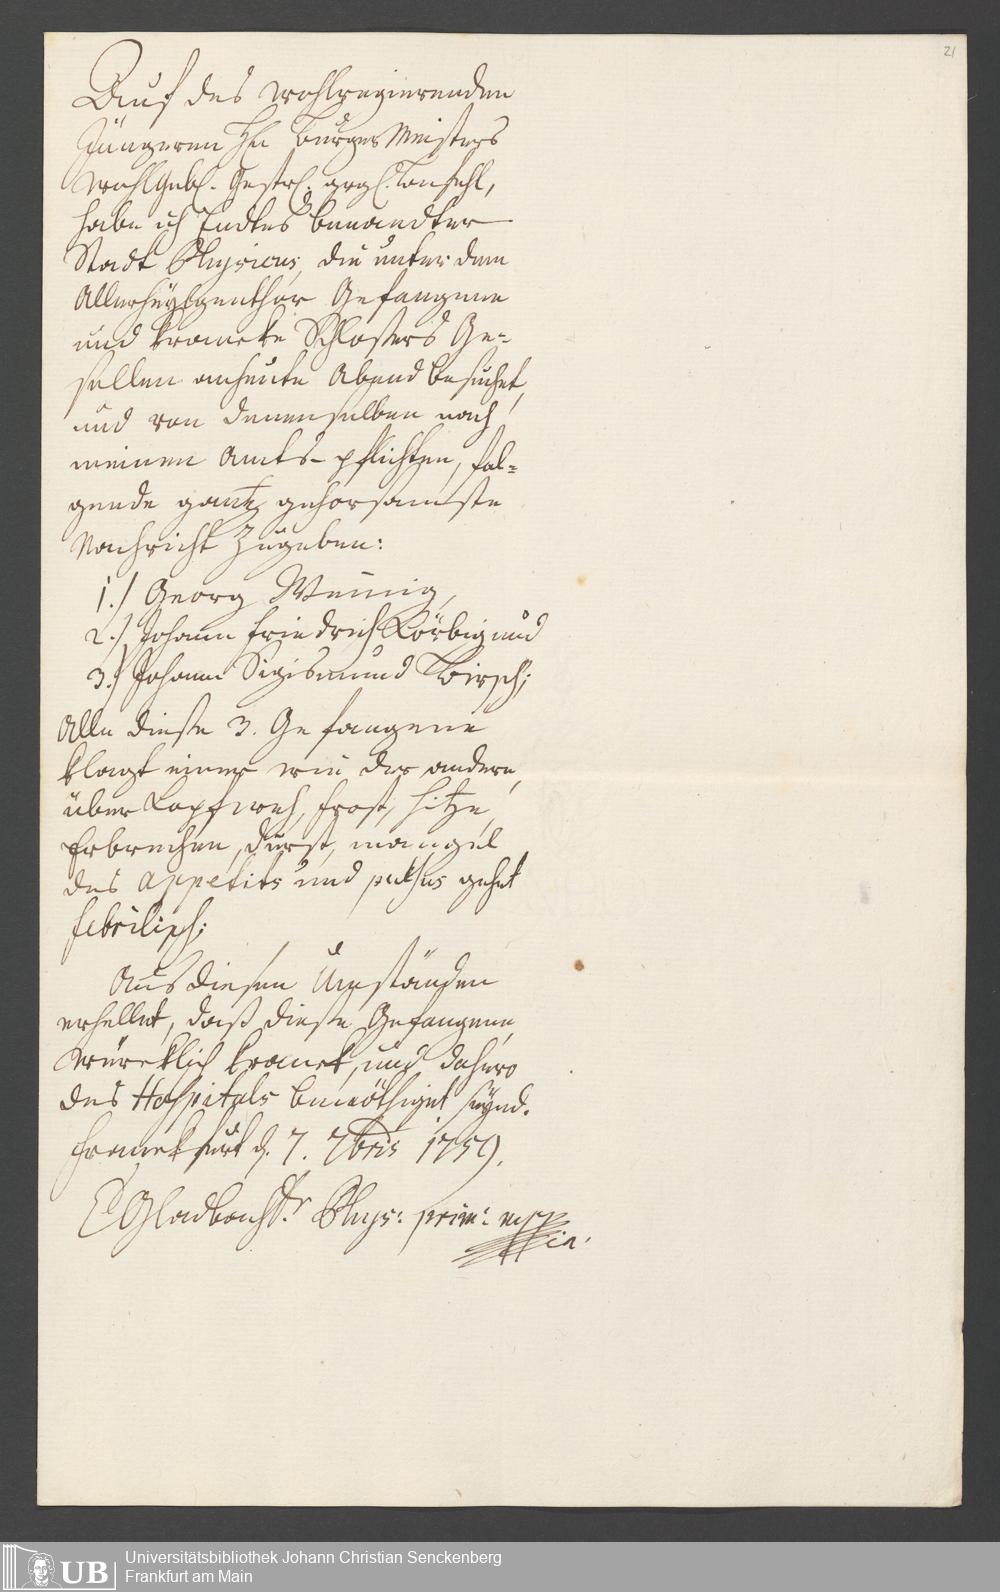 21
Auf des wohlregierenden
Jüngeren Hn BurgerMeisters
WohlGeb. Gestr. Befehl,
habe ich Endes benandter
Stadt Physicus, die unter dem
Allerheyligenthor Gefangene
und krancke Schlossers Ge-
sellen anheute Abend besuchet,
und von denenselben nach
meinen Amts-pflichten, fol-
gende gantz gehorsamste
Nachricht zugeben:
1.) Georg
2.) Johann Friedrich Körbig und
3.) Johann Sigismund Birsch;
Alle diese 3. Gefangene
klagt einer wie der andere,
über Kopfweh, frost, hitze,
Erbrechen, durst, mangel
des appetits und pulsus gehet
febrilisch;
Aus diesen Umständen
erhellet, daß diese Gefangene,
würcklich kranck, und dahero
des Hospitals benöthiget seynd.
Franckfurt d. 7. 7bris 1759.
Gladbach Dr. Phys: prim: mppria.
UB
Universitätsbibliothek Johann Christian Senckenberg
Frankfurt am Main